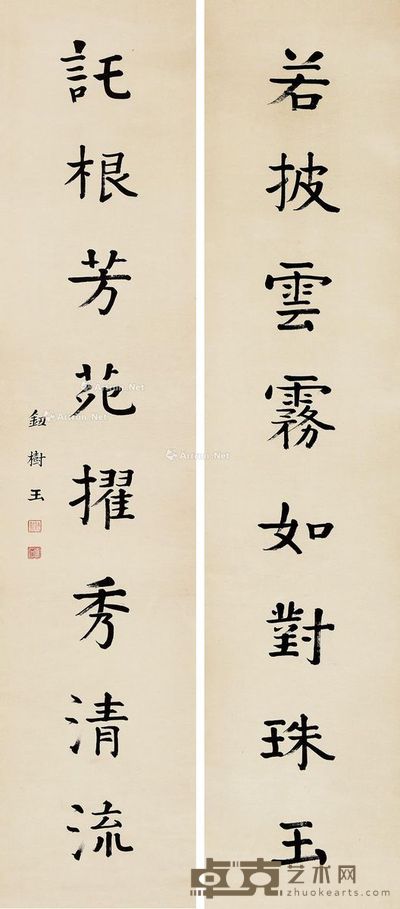 若披雲霧如對珠玉
託根芳苑擢秀清流
鈕樹玉
Artron.Net
Artron.Net
Artron.Net
卓克艺术网
zhuokearts.com